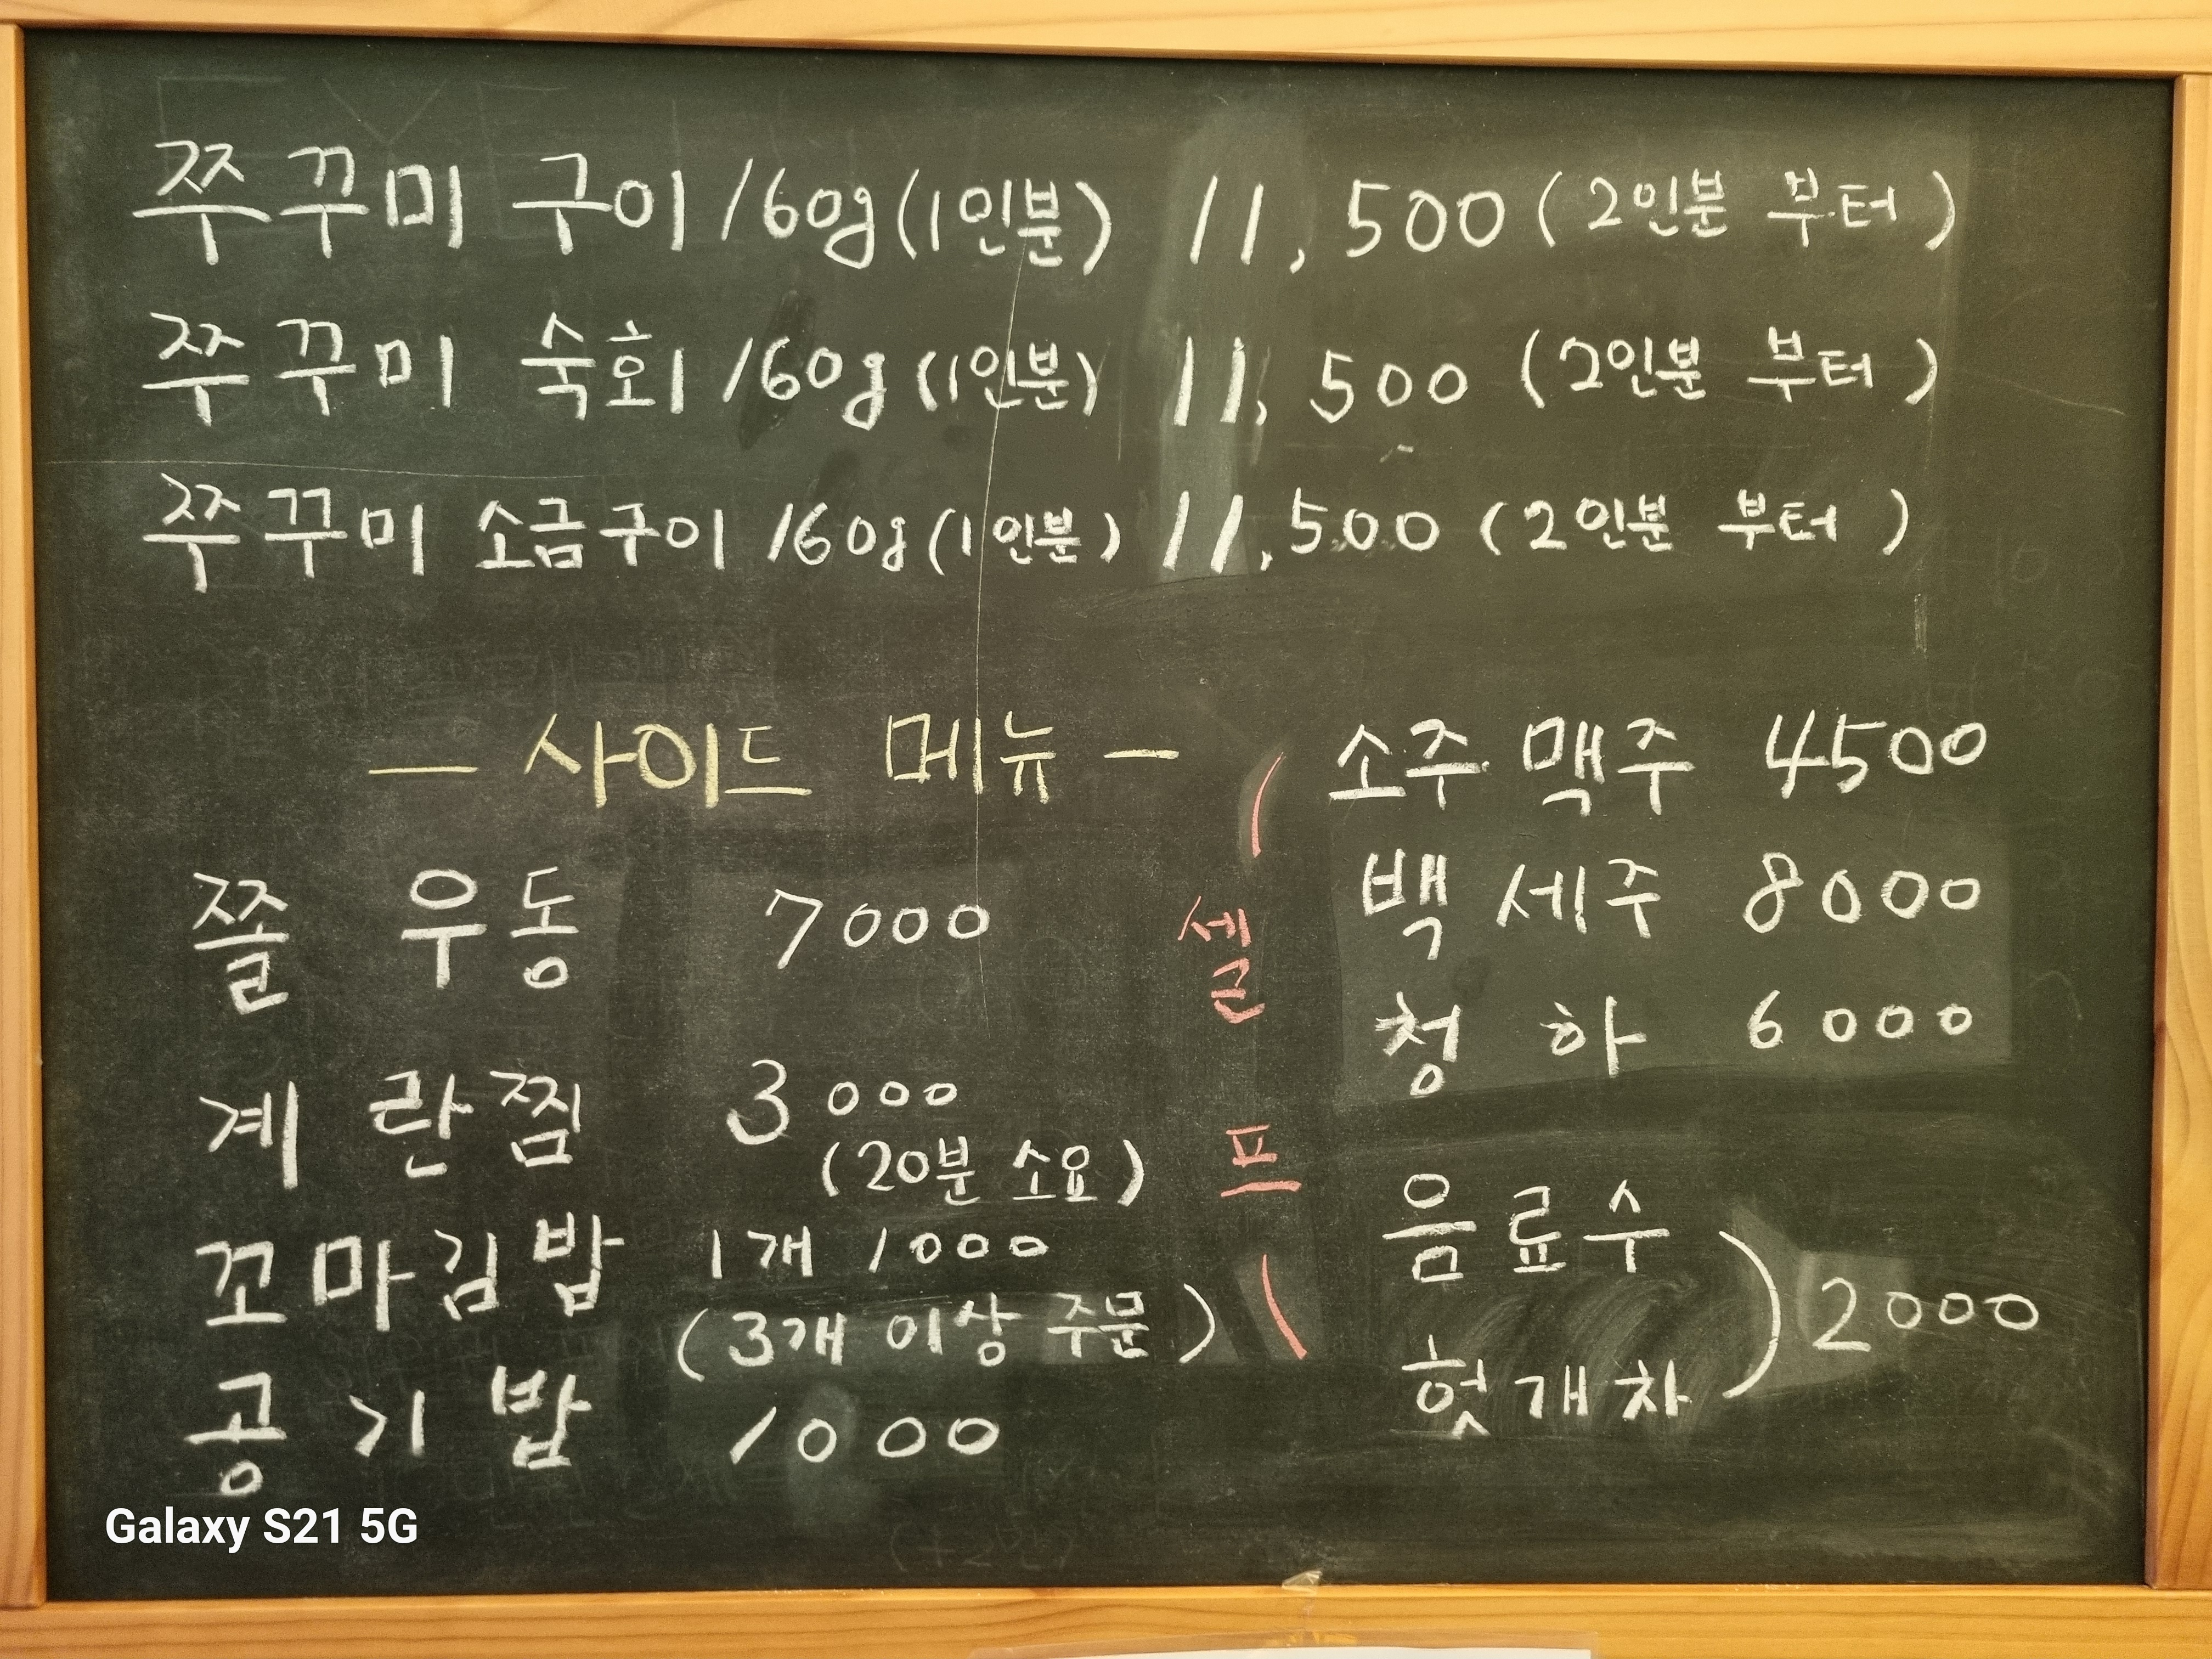 쭈꾸미 구이 160g (1인분) 11,500 (2인분 부터)
쭈꾸미 숙회 160g (1인분) 11,500 (2인분 부터)
쭈꾸미 소금구이 160g (1인분) 11,500 (2인분 부터)
- 사이드 메뉴 -
쫄 우동 7000
계란찜 3000
(20분 소요)
꼬마김밥 1개 1000
(3개 이상 주문)
공기밥 1000
( 셀프 )
소주 맥주 4500
백세주 8000
청하 6000
음료수
헛개차 ) 2000
Galaxy S21 5G